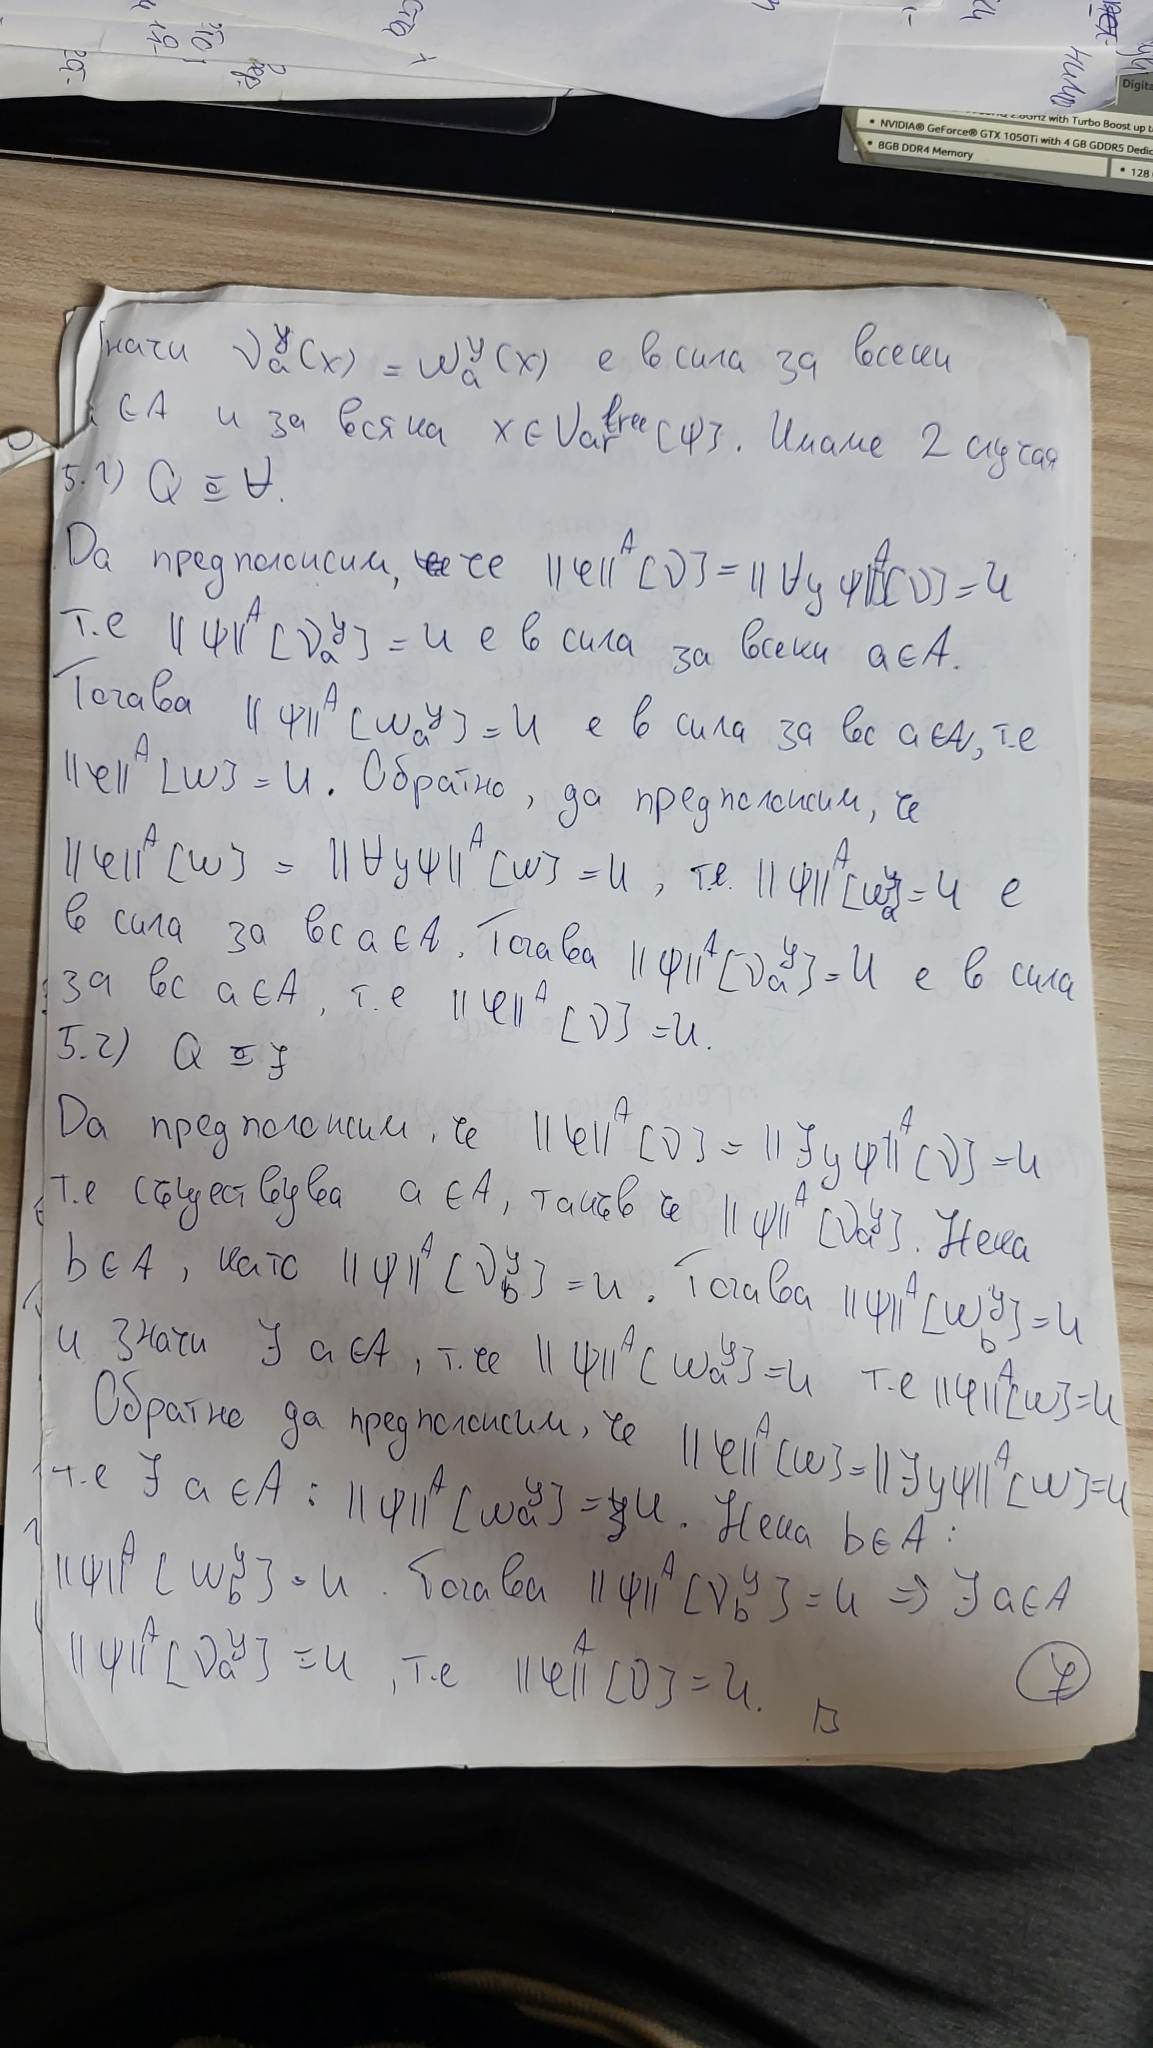 NVIDIA® GeForce® GTX 1050Ti with 4 GB GDDR5
8GB DDR4 Memory
значи νₐʸ(x) = wₐʸ(x) е в сила за всеки
∈A и за всяка x∈Varᶠʳᵉᵉ[ψ]. Имаме 2 случая
5.1) Q ≡ ∀.
Да предположим, че ||φ||ᴬ[ν] = ||∀y ψ||ᴬ[ν] = И
т.е ||ψ||ᴬ[νₐʸ] = И е в сила за всеки a∈A.
Тогава ||ψ||ᴬ[wₐʸ] = И е в сила за вс a∈A, т.е
||φ||ᴬ[w] = И. Обратно, да предположим, че
||φ||ᴬ[w] = ||∀yψ||ᴬ[w] = И, т.е. ||ψ||ᴬ[wₐʸ] = И е
в сила за вс a∈A. Тогава ||ψ||ᴬ[νₐʸ] = И е в сила
за вс a∈A, т.е ||φ||ᴬ[ν] = И.
5.2) Q ≡ ∃
Да предположим, че ||φ||ᴬ[ν] = ||∃y ψ||ᴬ[ν] = И
т.е съществува a∈A, такъв че ||ψ||ᴬ[νₐʸ]. Нека
b∈A, като ||ψ||ᴬ[ν_bʸ] = И. Тогава ||ψ||ᴬ[w_bʸ] = И
и значи ∃ a∈A, т.че ||ψ||ᴬ[wₐʸ] = И т.е ||φ||ᴬ[w] = И
Обратно да предположим, че ||φ||ᴬ[w] = ||∃yψ||ᴬ[w] = И
т.е ∃ a∈A : ||ψ||ᴬ[wₐʸ] = И. Нека b∈A :
||ψ||ᴬ[w_bʸ] = И. Тогава ||ψ||ᴬ[ν_bʸ] = И ⇒ ∃ a∈A
||ψ||ᴬ[νₐʸ] = И, т.е ||φ||ᴬ[ν] = И. □
7